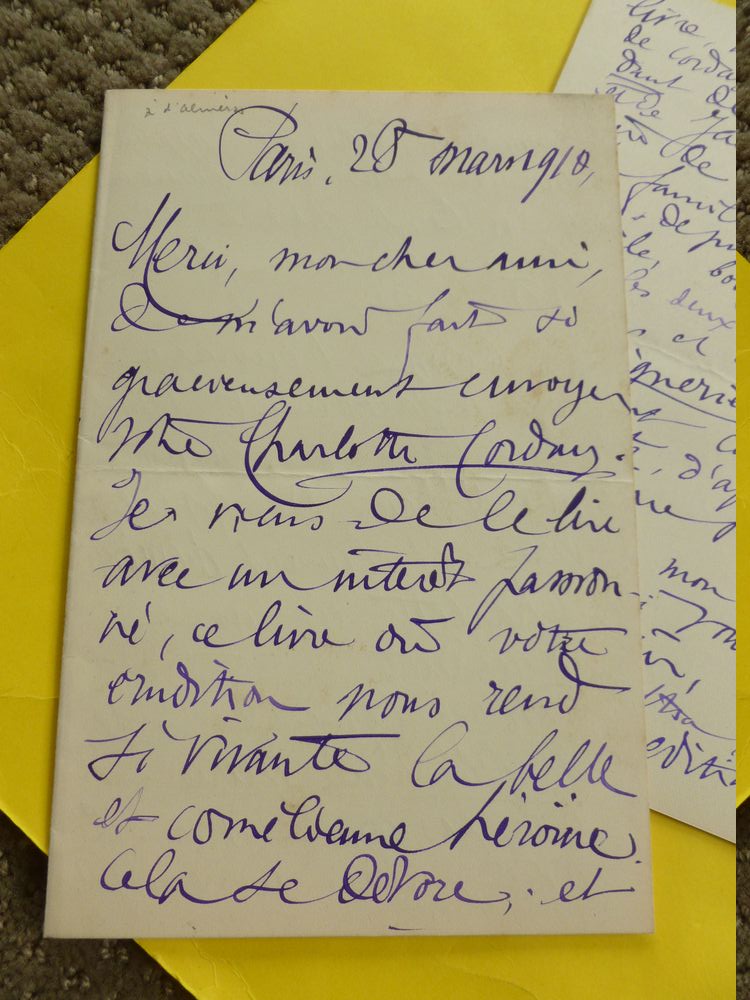 à d'alméras
Paris, 28 mars 1910,
Merci, mon cher ami,
de m'avoir fait si
gracieusement envoyer
votre Charlotte Corday.
Je viens de le lire
avec un intérêt passion-
né, ce livre où votre
érudition nous rend
si vivante la belle
et cornélienne héroïne.
Cela se dévore, et
livre,
de corda
dant de
de
famil
depu
les deux
et
mon